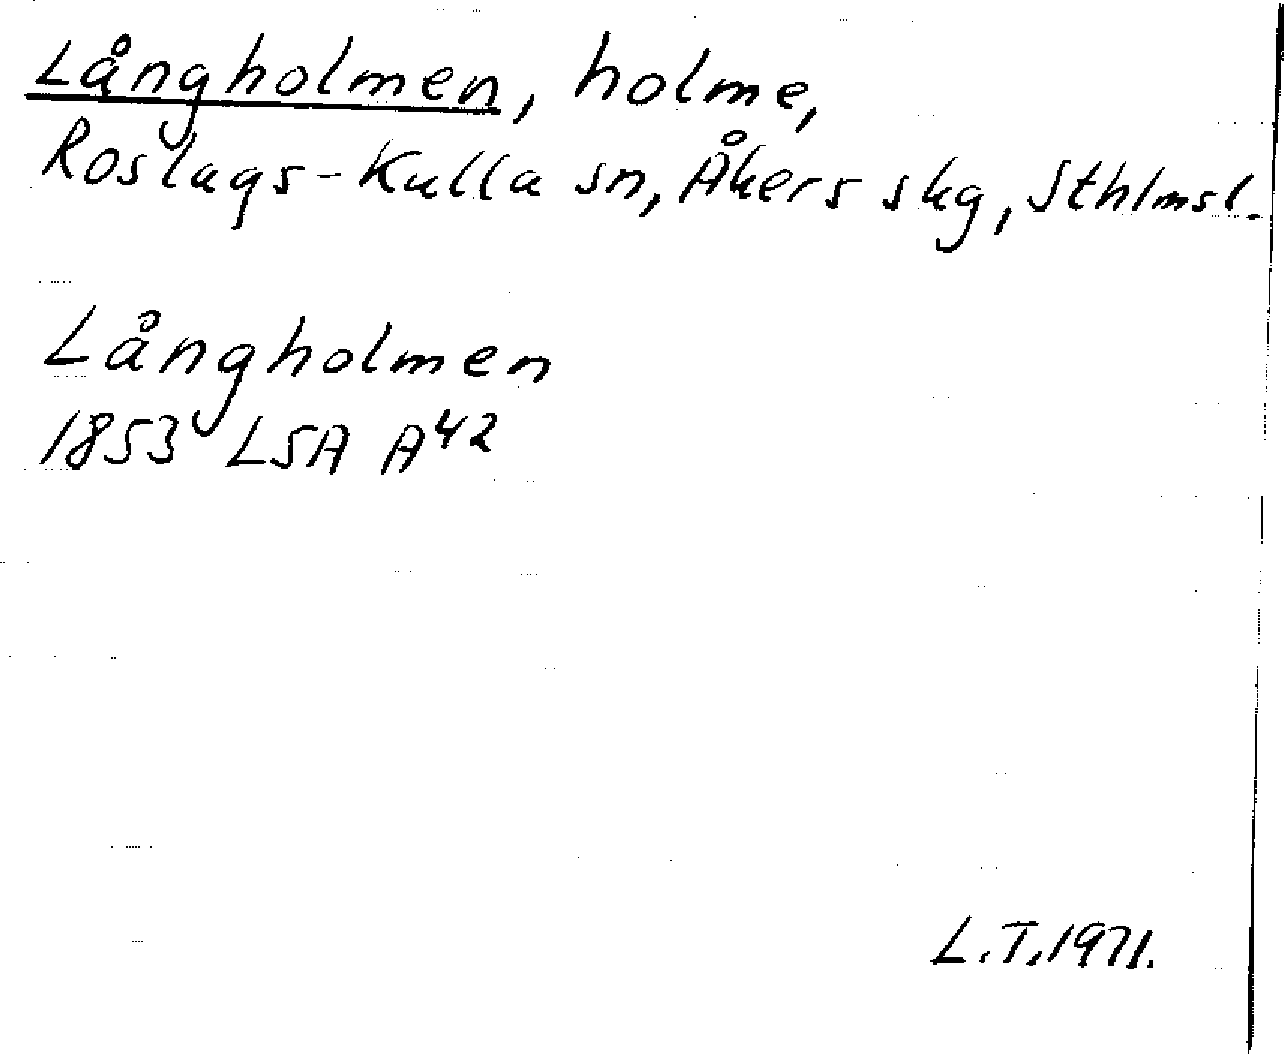 Långholmen, holme,
Roslags-Kulla sn, Åkers skg, Sthlmsl.
Långholmen
1853 LSA A42
L.T. 1971.